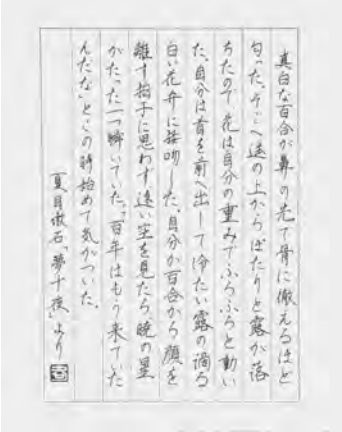 真白な百合が鼻の先で骨に徹えるほど
匂った。そこへ遥の上からぽたりと露が落
ちたので、花は自分の重みでふらふらと動い
た。自分は首を前へ出して冷たい露の滴る
白い花弁に接吻した。自分が百合から顔を
離す拍子に思わず遠い空を見たら、暁の星
がたった一つ瞬いていた。「百年はもう来ていた
んだな」とこの時始めて気がついた。
夏目漱石「夢十夜」より